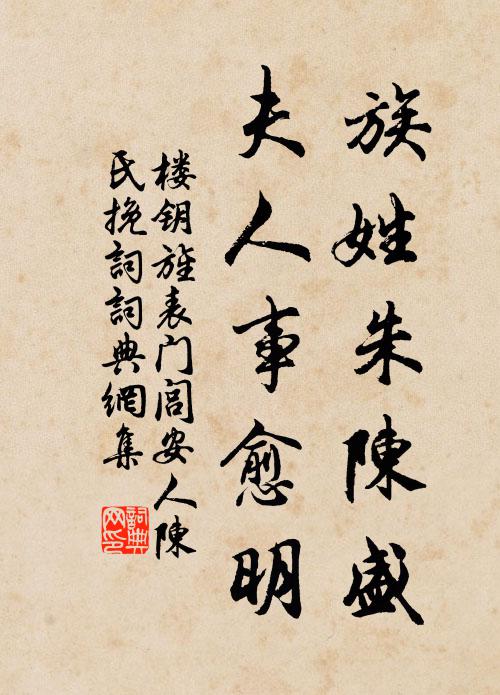 族姓朱陳盛
夫人事愈明
楼钥旌表门闾安人陳
氏挽詞詞典網集
詞典
网印